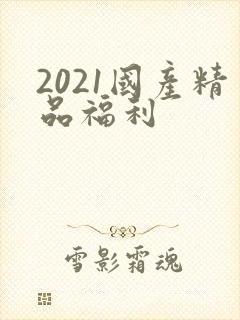 2021國産精
品福利
雪影霜魂